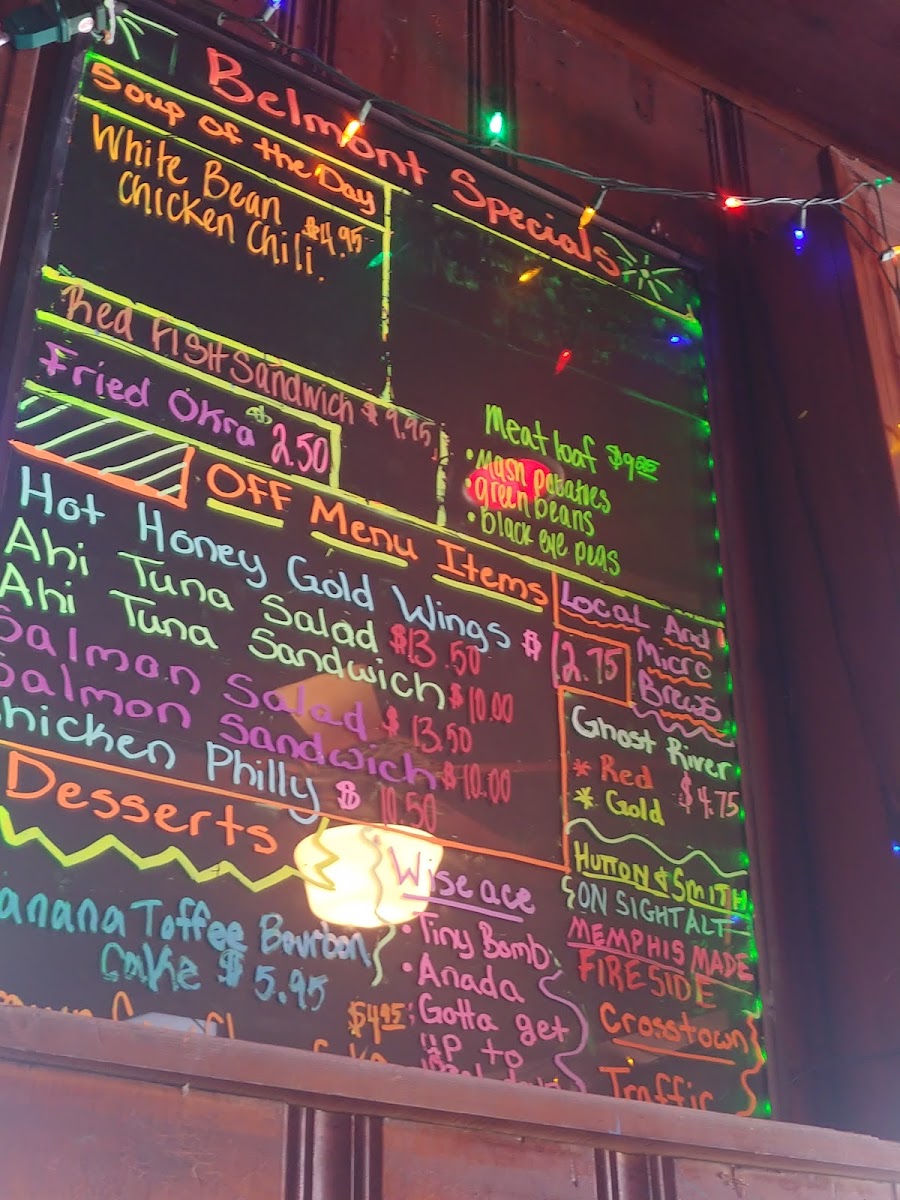 Belmont Specials
Soup of the Day
White Bean
Chicken Chili $4.95
Red FISH Sandwich $9.95
Fried Okra $2.50
Meat loaf $9.95
• Mash potatoes
• green beans
• black eye peas
OFF Menu Items
Hot Honey Gold Wings $12.75
Ahi Tuna Salad $13.50
Ahi Tuna Sandwich $10.00
Salman Salad $13.50
Salmon Sandwich $10.00
hicken Philly $10.50
Local And
Micro
Brews
Ghost River
* Red $4.75
* Gold
HUTTON & SMITH
ON SIGHT ALT
MEMPHIS MADE
FIRESIDE
Crosstown
Traffic
Desserts
anana Toffee Bourbon
Cake $5.95
$4.95
Wiseace
• Tiny Bomb
• Anada
• Gotta get
up to